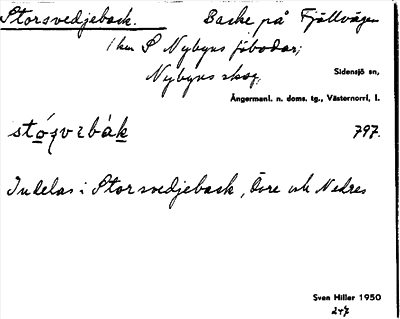 Storsvedjebask. Baske på Fjällvägen
1 km S Nybyns fäbodar;
Nybyns skog, Sidensjö sn,
Ångermanl. n. doms. tg., Västernorrl, l.
797.
Indelas i Storsvedjebask, Övre och Nedres
Sven Hiller 1950
247